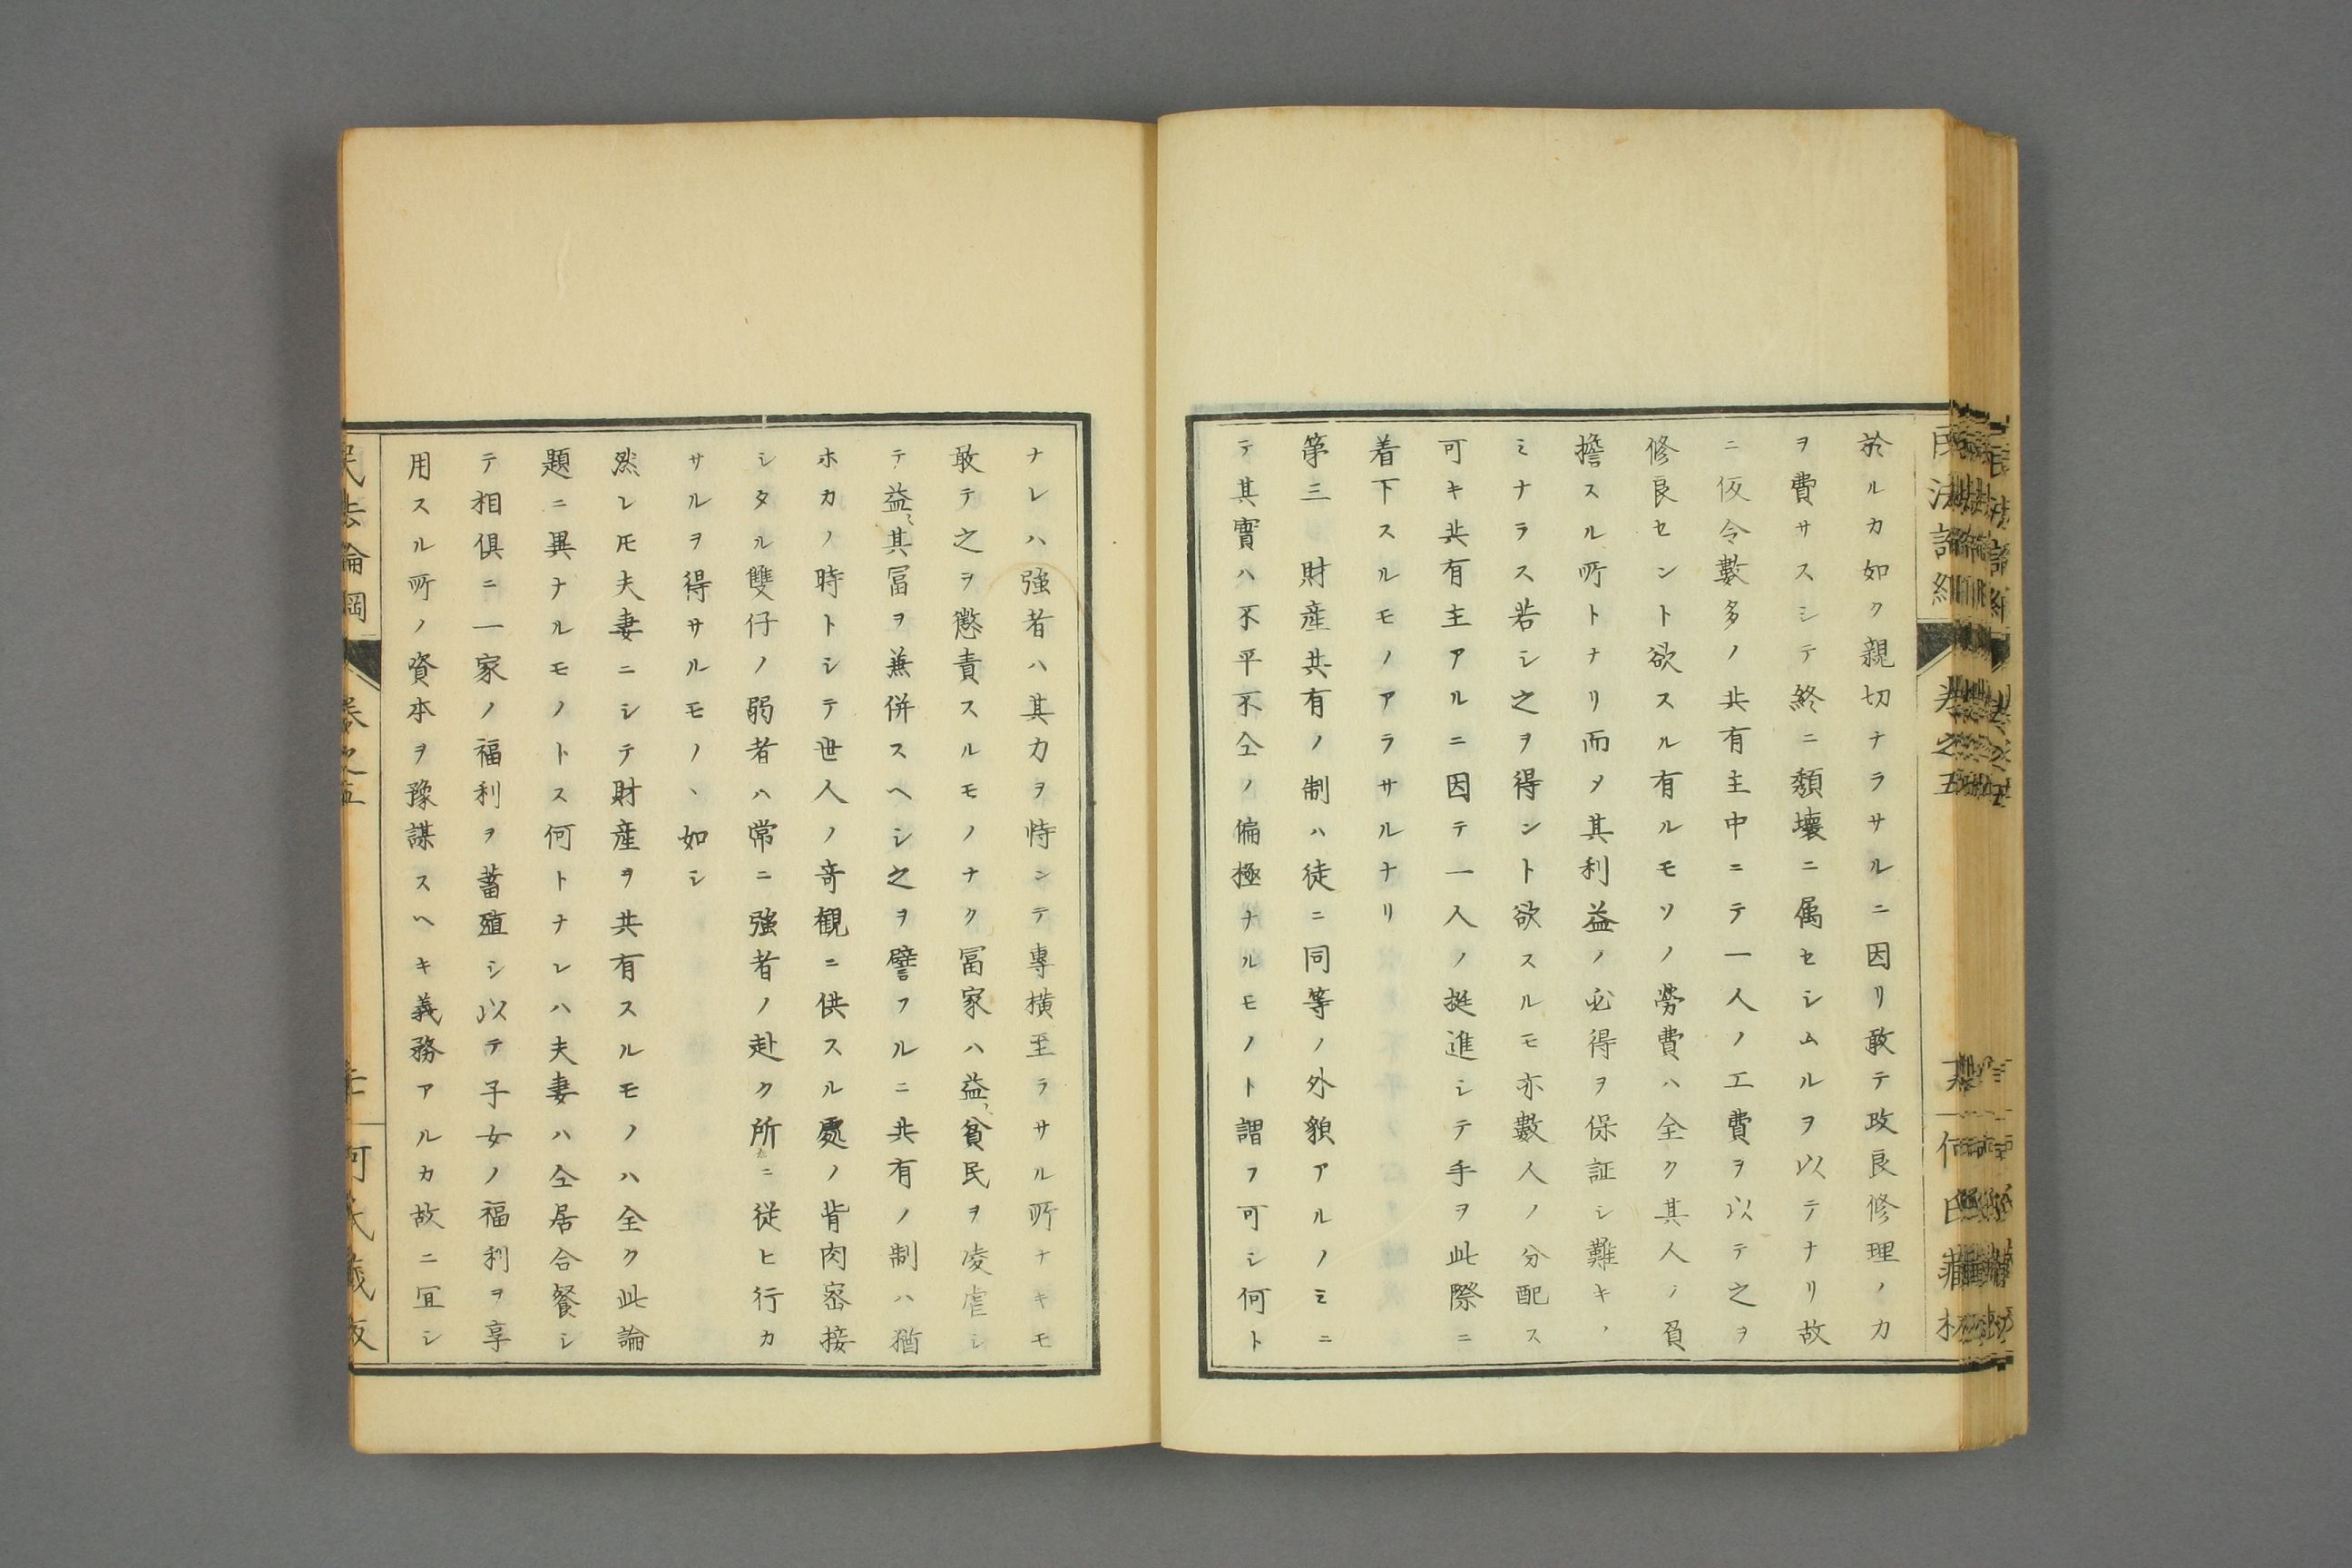 於ルカ如ク親切ナラサルニ因リ敢テ改良修理ノ力
ヲ費サスシテ終ニ頽壊ニ属セシムルヲ以テナリ故
ニ仮令數多ノ共有主中ニテ一人ノ工費ヲ以テ之ヲ
修良セント欲スル有ルモソノ勞費ハ全ク其人ノ負
擔スル所トナリ而メ其利益ノ必得ヲ保証シ難キノ
ミナラス若シ之ヲ得ント欲スルモ亦數人ノ分配ス
可キ共有主アルニ因テ一人ノ挺進シテ手ヲ此際ニ
着下スルモノアラサルナリ
第三 財産共有ノ制ハ徒ニ同等ノ外貌アルノミニ
テ其實ハ不平不仝ノ偏極ナルモノト謂フ可シ何ト
ナレハ強者ハ其力ヲ恃ンテ專横至ラサル所ナキモ
敢テ之ヲ懲責スルモノナク冨家ハ益〻貧民ヲ凌虐シ
テ益〻其冨ヲ兼併スヘシ之ヲ譬フルニ共有ノ制ハ猶
ホカノ時トシテ世人ノ竒観ニ供スル處ノ背肉密接
シタル雙仔ノ弱者ハ常ニ強者ノ赴ク所ニ従ヒ行カ
サルヲ得サルモノヽ如シ
然レ𪜈夫妻ニシテ財産ヲ共有スルモノハ全ク此論
題ニ異ナルモノトス何トナレハ夫妻ハ仝居合餐シ
テ相倶ニ一家ノ福利ヲ蓄殖シ以テ子女ノ福利ヲ享
用スル所ノ資本ヲ豫謀スヘキ義務アルカ故ニ冝シ
民法論綱 巻之五 何氏蔵版